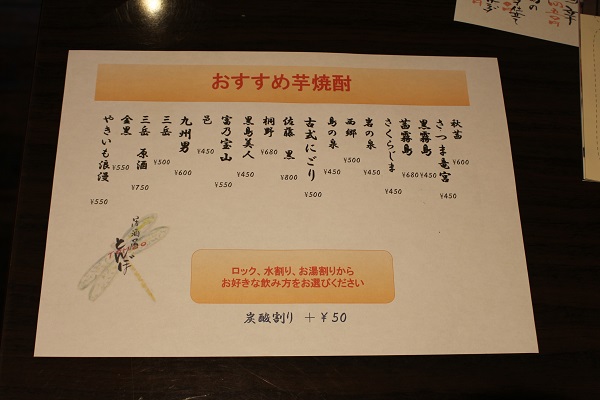 おすすめ芋焼酎
秋茜 ¥600
さつま竜宮 ¥450
黒霧島 ¥450
茜霧島 ¥680
さくらじま ¥450
岩の泉 ¥450
西郷 ¥500
島の泉 ¥450
古式にごり ¥500
佐藤 黒 ¥800
桐野 ¥680
黒島美人 ¥450
富乃宝山 ¥550
邑 ¥450
九州男 ¥600
三岳 ¥500
三岳 原酒 ¥750
金黒 ¥550
やきいも浪漫 ¥550
居酒屋
とんぼ
ロック、水割り、お湯割りから
お好きな飲み方をお選びください
炭酸割り +¥50